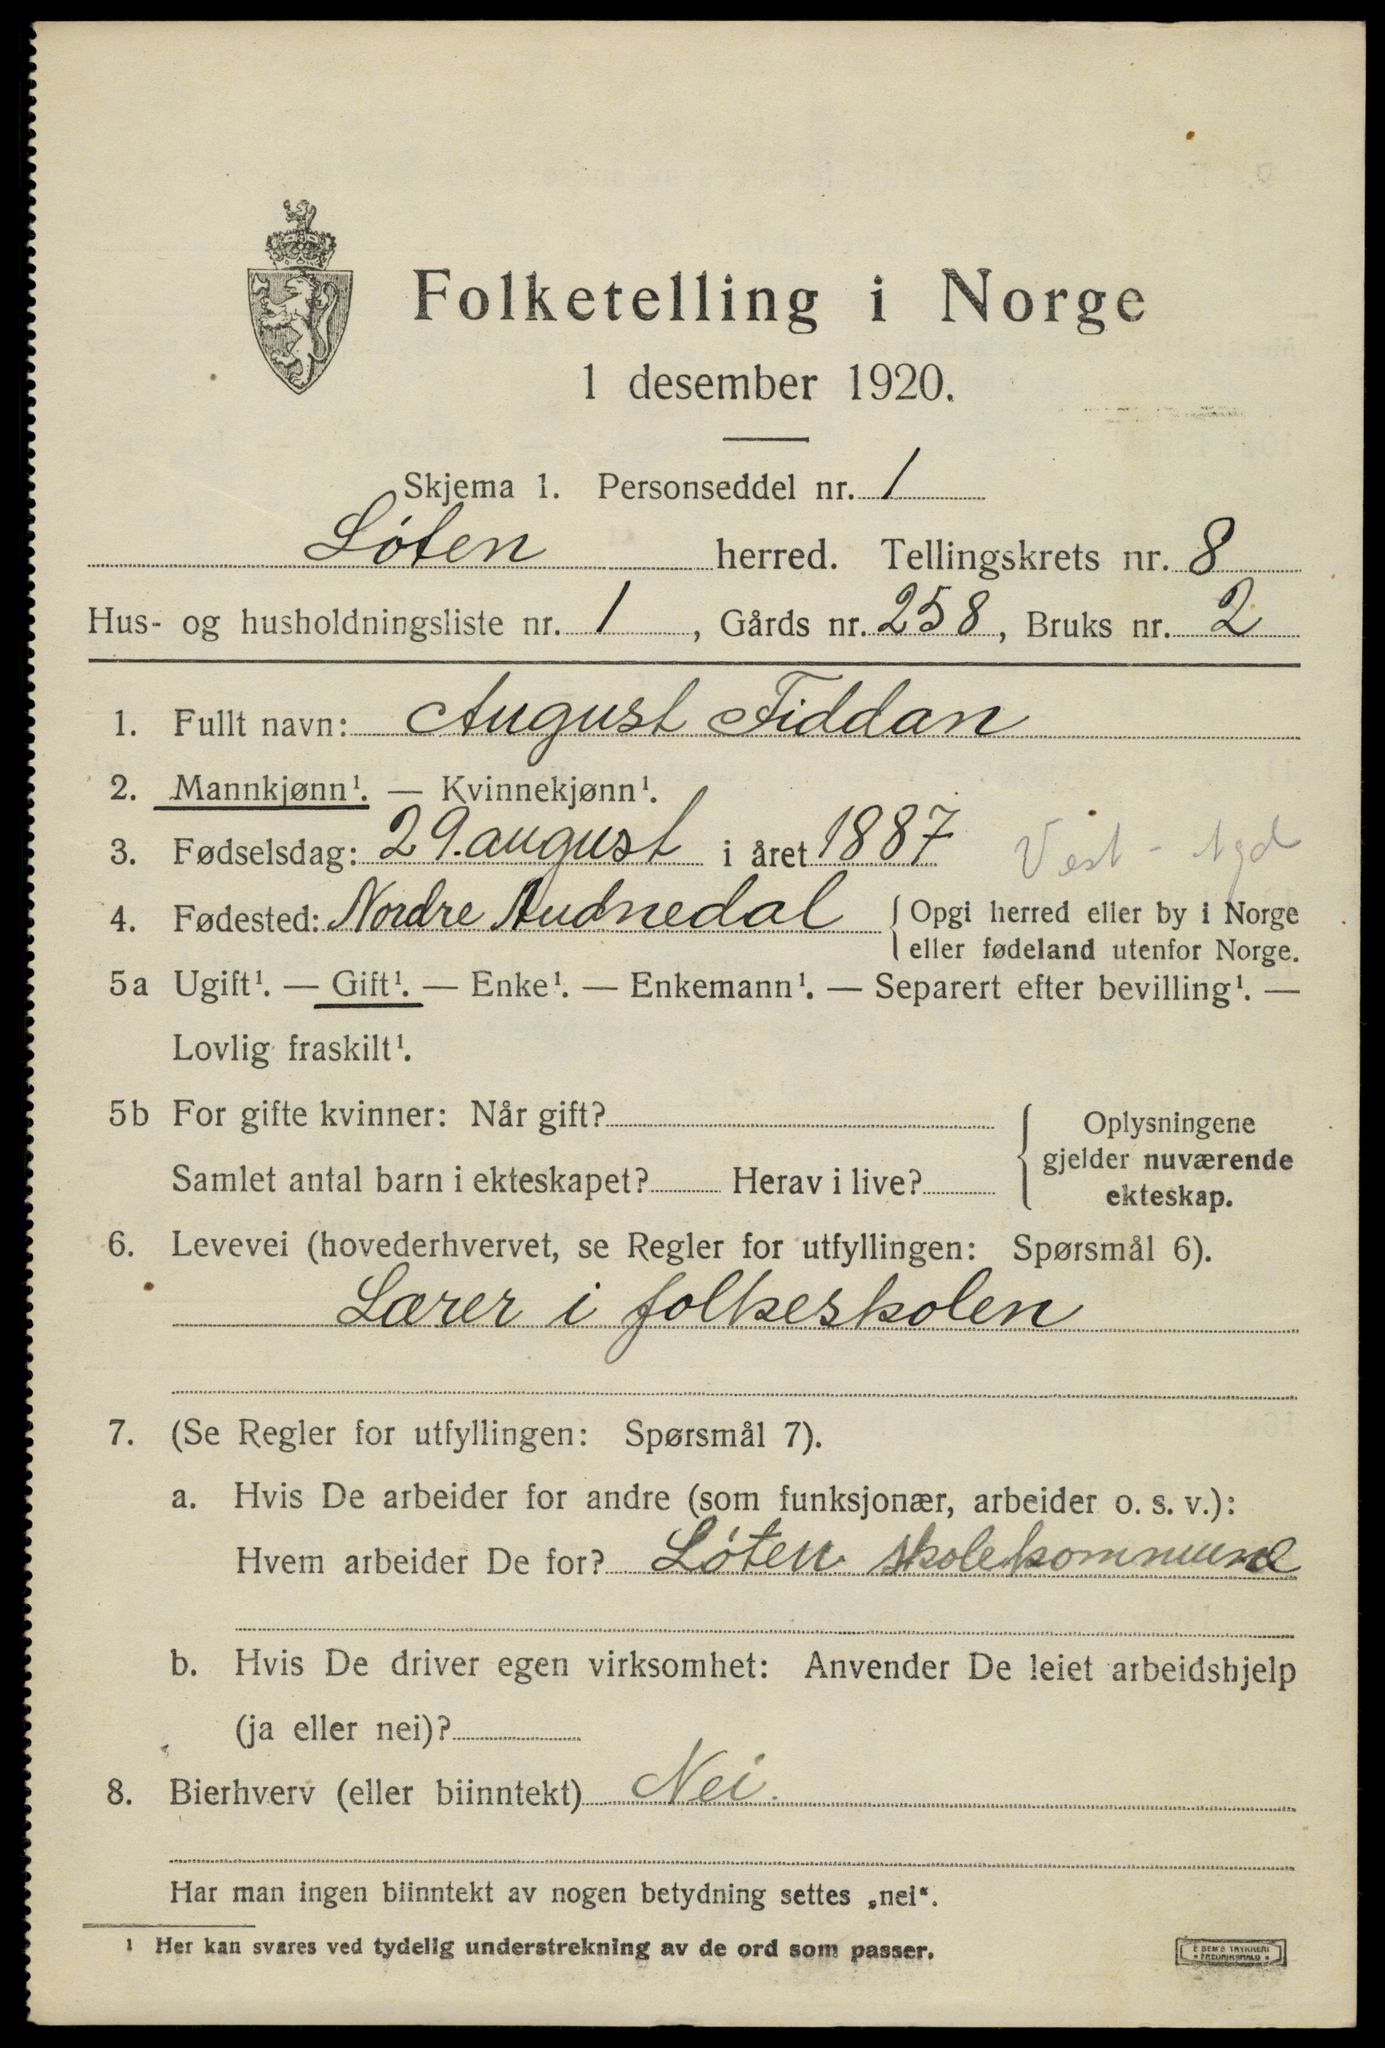 Folketelling i Norge
1 desember 1920.
Skjema 1. Personseddel nr. 1
Løten herred. Tellingskrets nr. 8
Hus- og husholdningsliste nr. 1, Gårds nr. 258, Bruks nr. 2
1. Fullt navn: August Fiddan
2. Mannkjønn¹. — Kvinnekjønn¹.
3. Fødselsdag: 29. august i året 1887 Vest-Agd
4. Fødested: Nordre Audnedal { Opgi herred eller by i Norge
eller fødeland utenfor Norge.
5a Ugift¹. — Gift¹. — Enke¹. — Enkemann¹. — Separert efter bevilling¹. —
Lovlig fraskilt¹.
5b For gifte kvinner: Når gift? { Oplysningene
gjelder nuværende
ekteskap.
Samlet antal barn i ekteskapet? Herav i live?
6. Levevei (hovederhvervet, se Regler for utfyllingen: Spørsmål 6).
Lærer i folkeskolen
7. (Se Regler for utfyllingen: Spørsmål 7).
a. Hvis De arbeider for andre (som funksjonær, arbeider o. s. v.):
Hvem arbeider De for? Løten skolekommune
b. Hvis De driver egen virksomhet: Anvender De leiet arbeidshjelp
(ja eller nei)?
8. Bierhverv (eller biinntekt) Nei.
Har man ingen biinntekt av nogen betydning settes „nei“.
¹ Her kan svares ved tydelig understrekning av de ord som passer.
E SEM'S TRYKKERI
FREDRIKSHALD